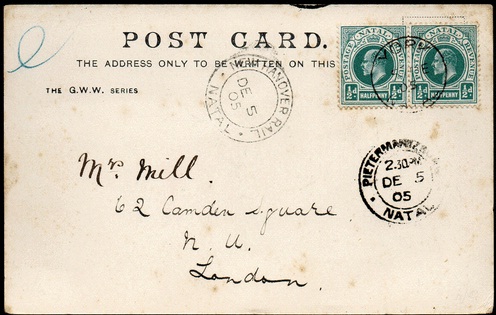 POST CARD.
THE ADDRESS ONLY TO BE WRITTEN ON THIS
THE G.W.W. SERIES
POSTAGE NATAL REVENUE
½d HALFPENNY ½d
POSTAGE NATAL REVENUE
½d HALFPENNY ½d
HANOVER RAIL
DE 5
05
NATAL
PIETERMARITZ
2.30PM
DE 5
05
NATAL
Mrs Mill.
62 Camden Square
N. W.
London.